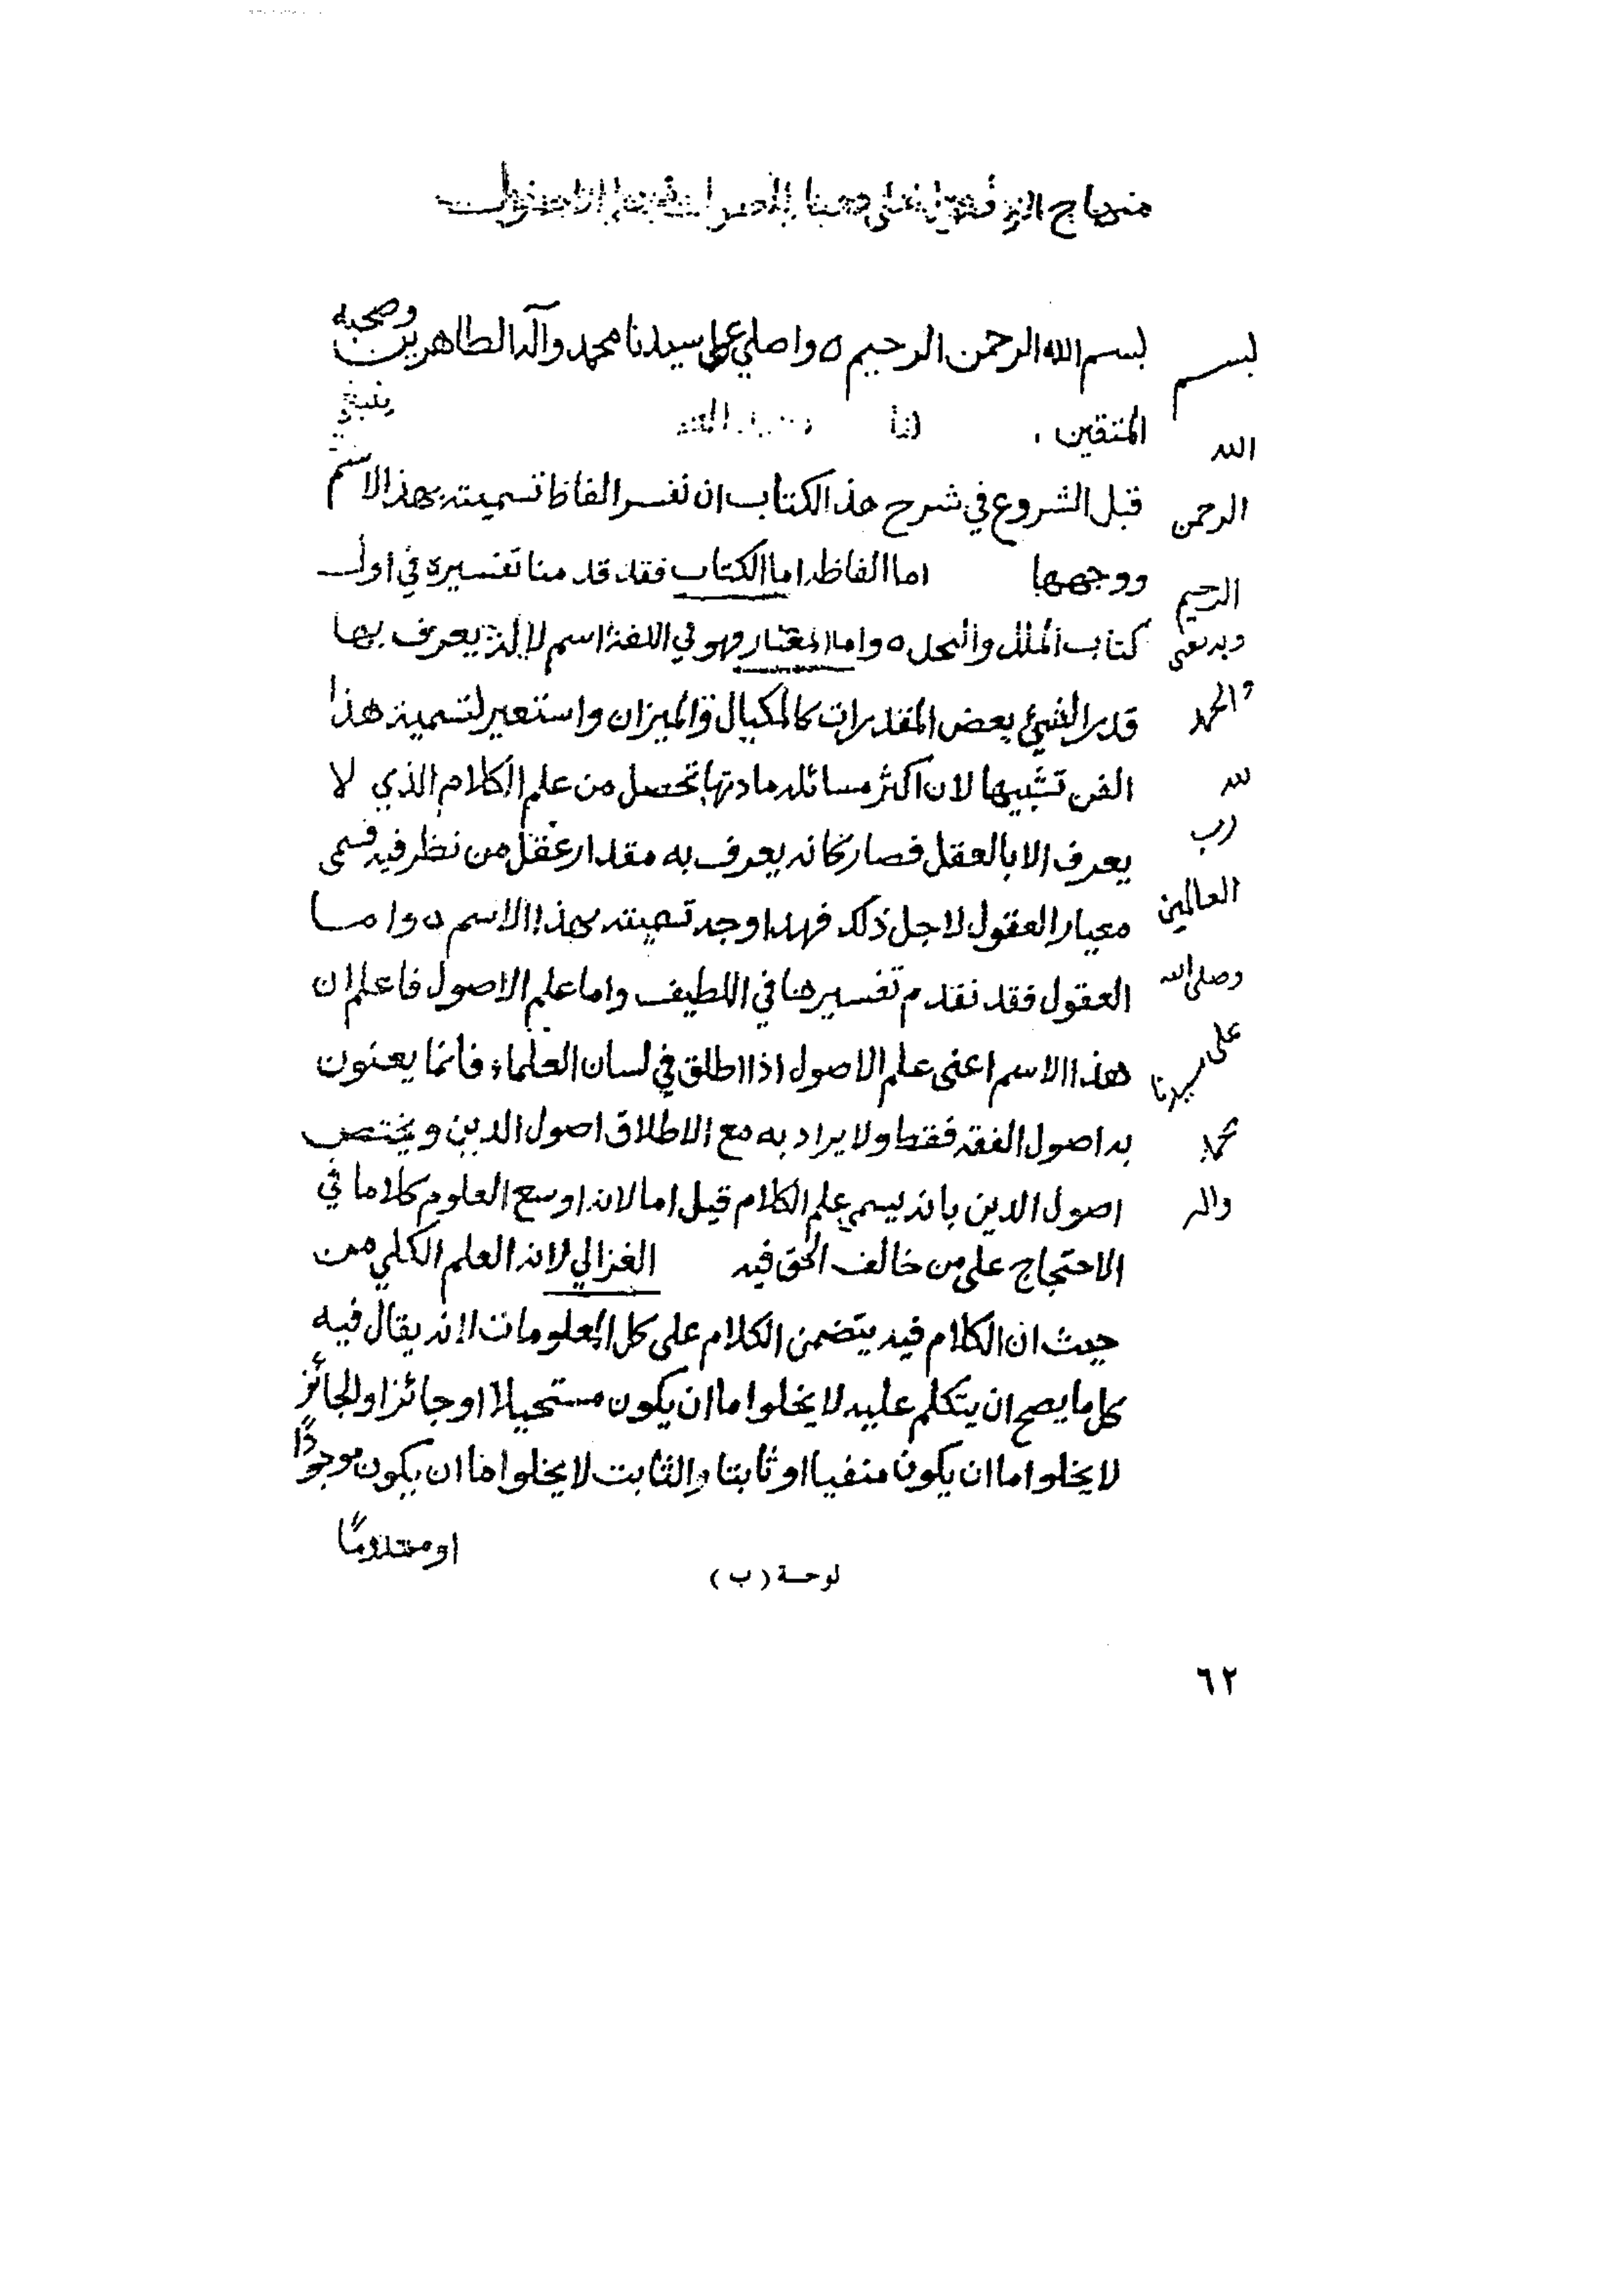 منهاج
بسم الله الرحمن الرحيم ه واصلي على سيدنا محمد وآله الطاهرين وصحبه
المتقين ينبغي
قبل الشروع في شرح هذ الكتاب ان نفسر الفاظ تسميته بهذ الاسم
ووجهها اما الفاظه اما الكتاب فقد قدمنا تفسيره في اول
كتاب الملل والنحل ه واما المعيار فهو في اللغة اسم لالة يعرف بها
قدر الشيئ بعض المقدرات كالمكيال والميزان واستعير لتسمية هذا
الفن تشبيها لان اكثر مسائله مادتها تحصل من علم الكلام الذي لا
يعرف الا بالعقل فصار كانه يعرف به مقدار عقل من نظر فيه فسمى
معيار العقول لاجل ذلك فهذا وجه تسميته بهذا الاسم ه واما
العقول فقد تقدم تفسيرها في اللطيف واما علم الاصول فاعلم ان
هذا الاسم اعنى علم الاصول اذا اطلق في لسان العلماء فانما يعنون
به اصول الفقه فقط ولا يراد به مع الاطلاق اصول الدين ويختص
اصول الدين بانه يسمى علم الكلام قيل اما لانه اوسع العلوم كلاما في
الاحتجاج على من خالف الحق فيه الغزالي لانه العلم الكلي من
حيث ان الكلام فيه يتضمن الكلام على كل المعلومات لانه يقال فيه
كل ما يصح ان يتكلم عليه لا يخلوا ما ان يكون مستحيلا او جائزا والجائز
لا يخلوا ما ان يكون منفيا او ثابتا والثابت لا يخلوا ما ان يكون موجودًا
او معدومًا
بسم
الله
الرحمن
الرحيم
وبه نستعين
والحمد
لله
رب
العالمين
وصلى الله
على
سيدنا
محمد
واله
لوحة (ب)
٦٢